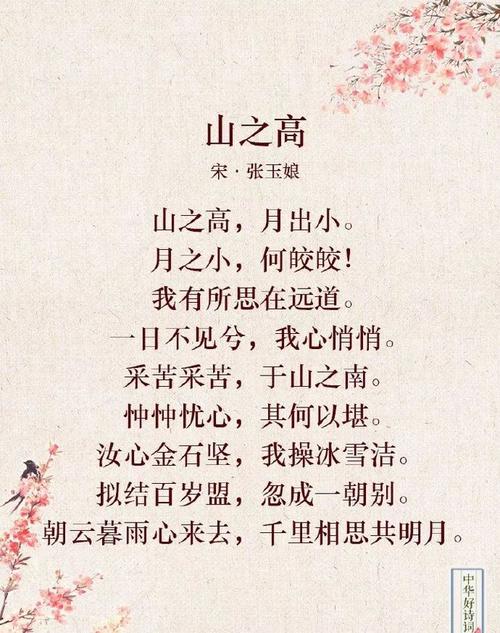 山之高
宋·张玉娘
山之高，月出小。
月之小，何皎皎！
我有所思在远道。
一日不见兮，我心悄悄。
采苦采苦，于山之南。
忡忡忧心，其何以堪。
汝心金石坚，我操冰雪洁。
拟结百岁盟，忽成一朝别。
朝云暮雨心来去，千里相思共明月。
中华好诗词